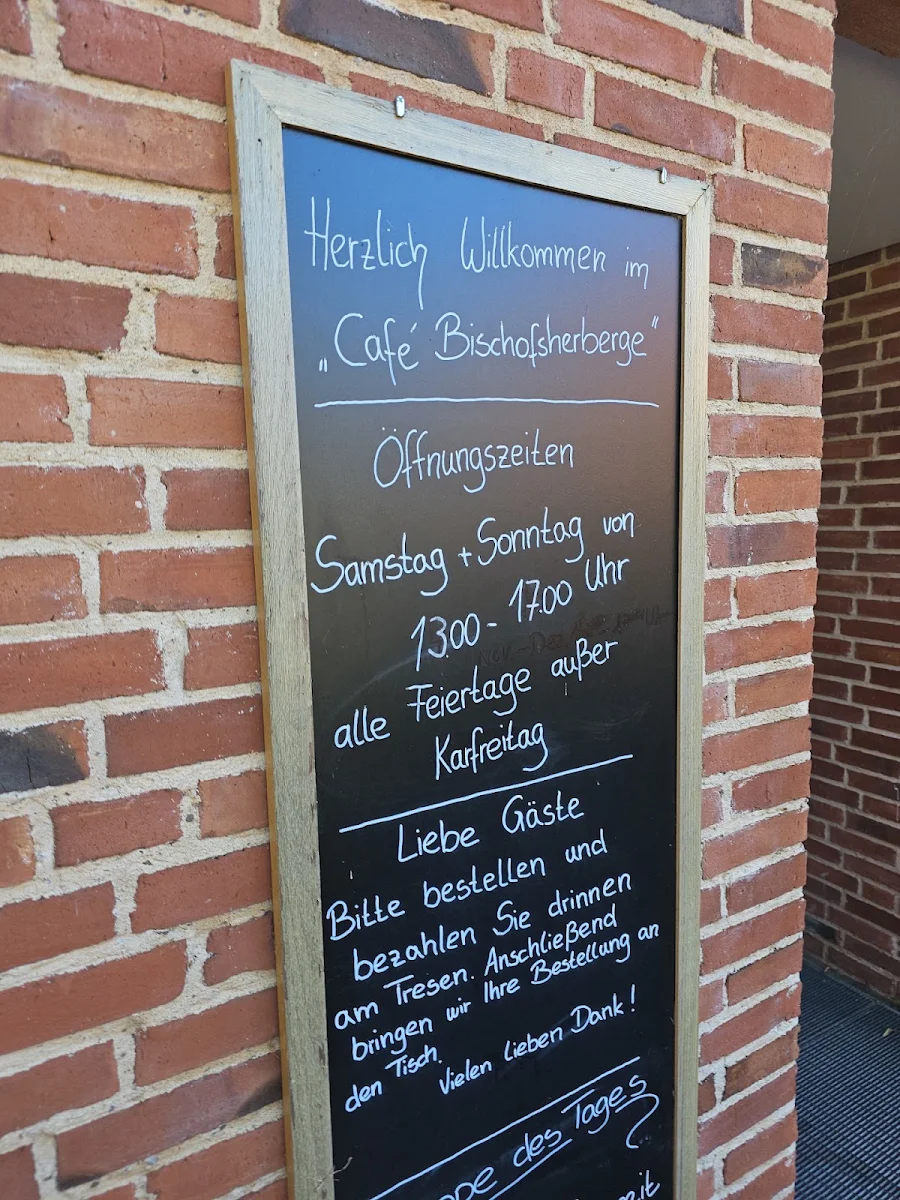 Herzlich Willkommen im
„Café Bischofsherberge"
Öffnungszeiten
Samstag + Sonntag von
13.00 - 17.00 Uhr
alle Feiertage außer
Karfreitag
Liebe Gäste
Bitte bestellen und
bezahlen Sie drinnen
am Tresen. Anschließend
bringen wir Ihre Bestellung an
den Tisch.
Vielen lieben Dank!
des Tages